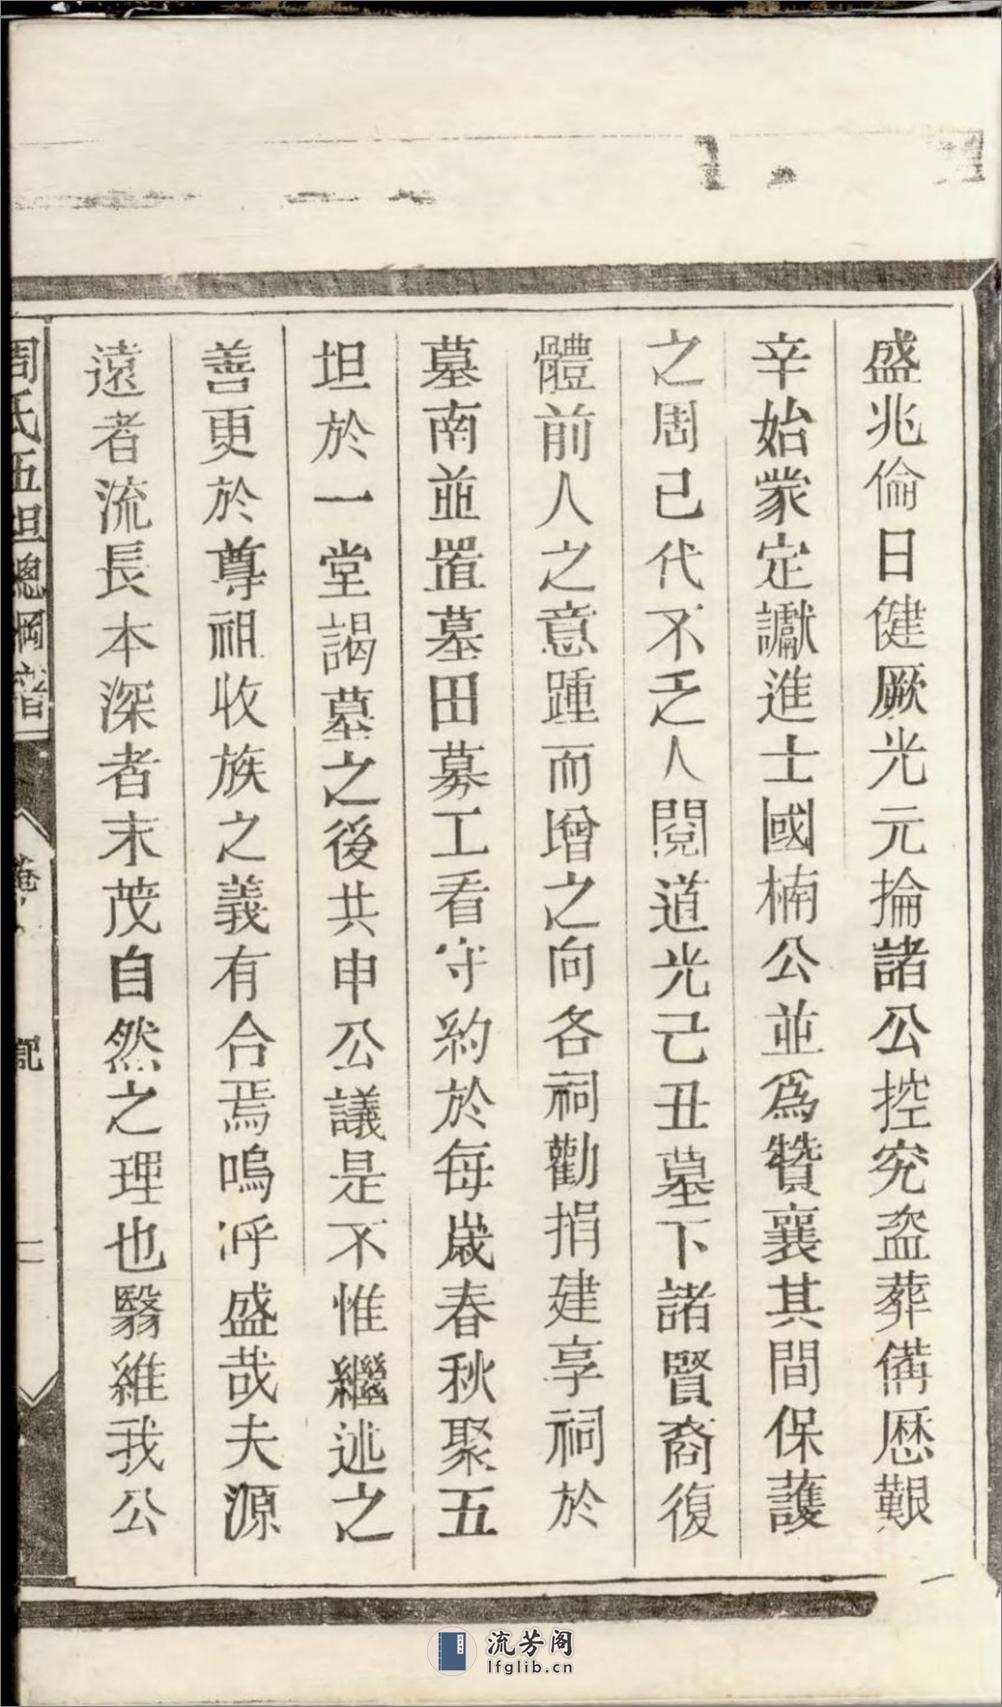 盛兆倫日健厥光元掄諸公控究盜葬備歷艱
辛始蒙定讞進士國楠公並為贊襄其間保護
之周已代不乏人閱道光己丑墓下諸賢裔復
體前人之意踵而增之向各祠勸捐建享祠於
墓南並置墓田募工看守約於每歲春秋聚五
坦於一堂謁墓之後共申公議是不惟繼述之
善更於尊祖收族之義有合焉嗚呼盛哉夫源
遠者流長本深者末茂自然之理也翳維我公
周氏五坦總綱譜
記
流芳阁
lfglib.cn